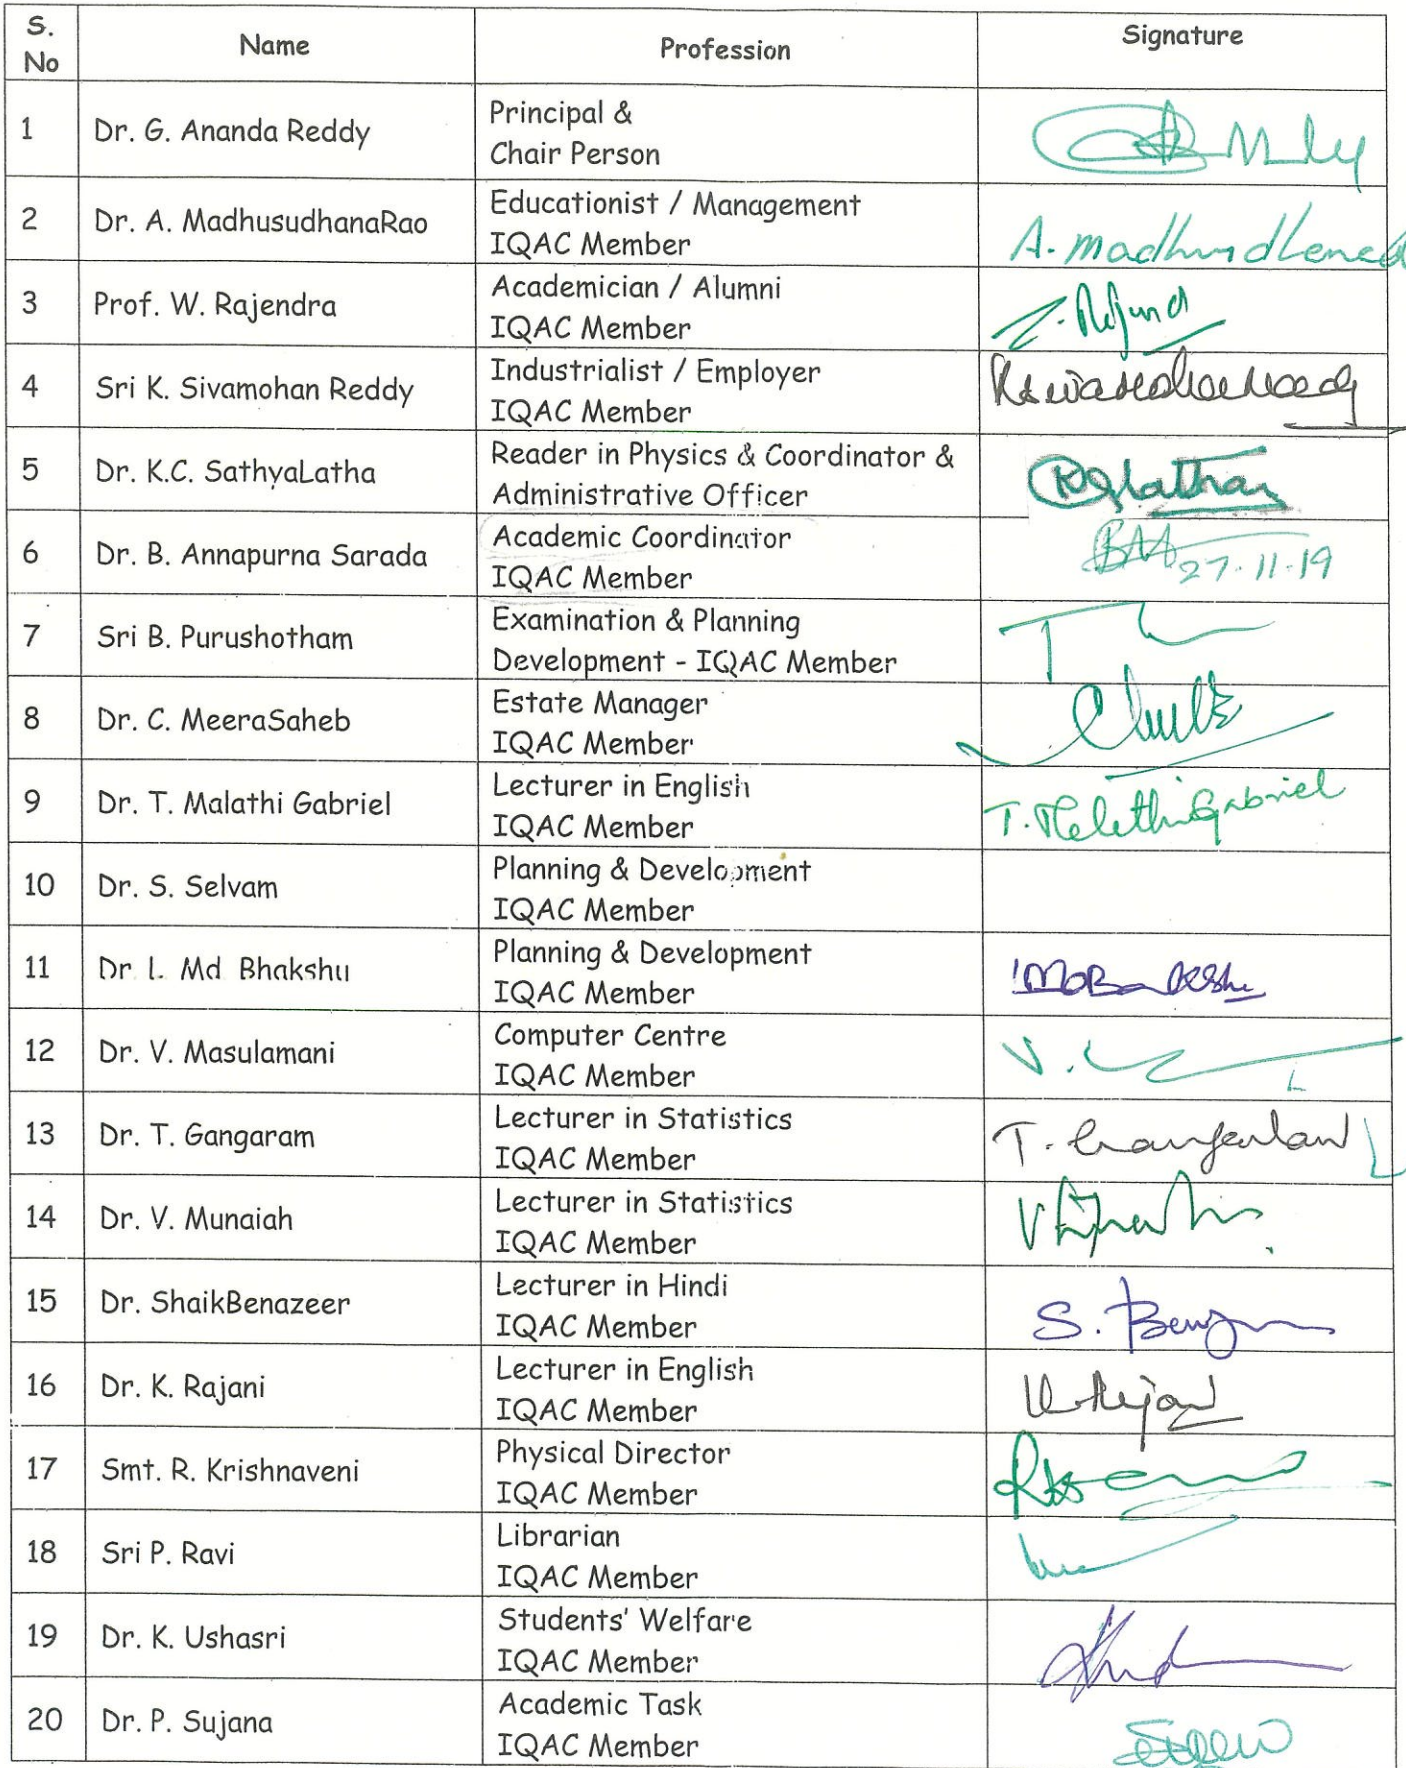 S. No Name Profession Signature
1 Dr. G. Ananda Reddy Principal &
Chair Person
2 Dr. A. MadhusudhanaRao Educationist / Management
IQAC Member
3 Prof. W. Rajendra Academician / Alumni
IQAC Member
4 Sri K. Sivamohan Reddy Industrialist / Employer
IQAC Member
5 Dr. K.C. SathyaLatha Reader in Physics & Coordinator &
Administrative Officer
6 Dr. B. Annapurna Sarada Academic Coordinator
IQAC Member 27.11.19
7 Sri B. Purushotham Examination & Planning
Development - IQAC Member
8 Dr. C. MeeraSaheb Estate Manager
IQAC Member
9 Dr. T. Malathi Gabriel Lecturer in English
IQAC Member T. Malathi Gabriel
10 Dr. S. Selvam Planning & Development
IQAC Member
11 Dr. L. Md Bhakshu Planning & Development
IQAC Member
12 Dr. V. Masulamani Computer Centre
IQAC Member
13 Dr. T. Gangaram Lecturer in Statistics
IQAC Member
14 Dr. V. Munaiah Lecturer in Statistics
IQAC Member
15 Dr. ShaikBenazeer Lecturer in Hindi
IQAC Member
16 Dr. K. Rajani Lecturer in English
IQAC Member
17 Smt. R. Krishnaveni Physical Director
IQAC Member
18 Sri P. Ravi Librarian
IQAC Member
19 Dr. K. Ushasri Students' Welfare
IQAC Member
20 Dr. P. Sujana Academic Task
IQAC Member